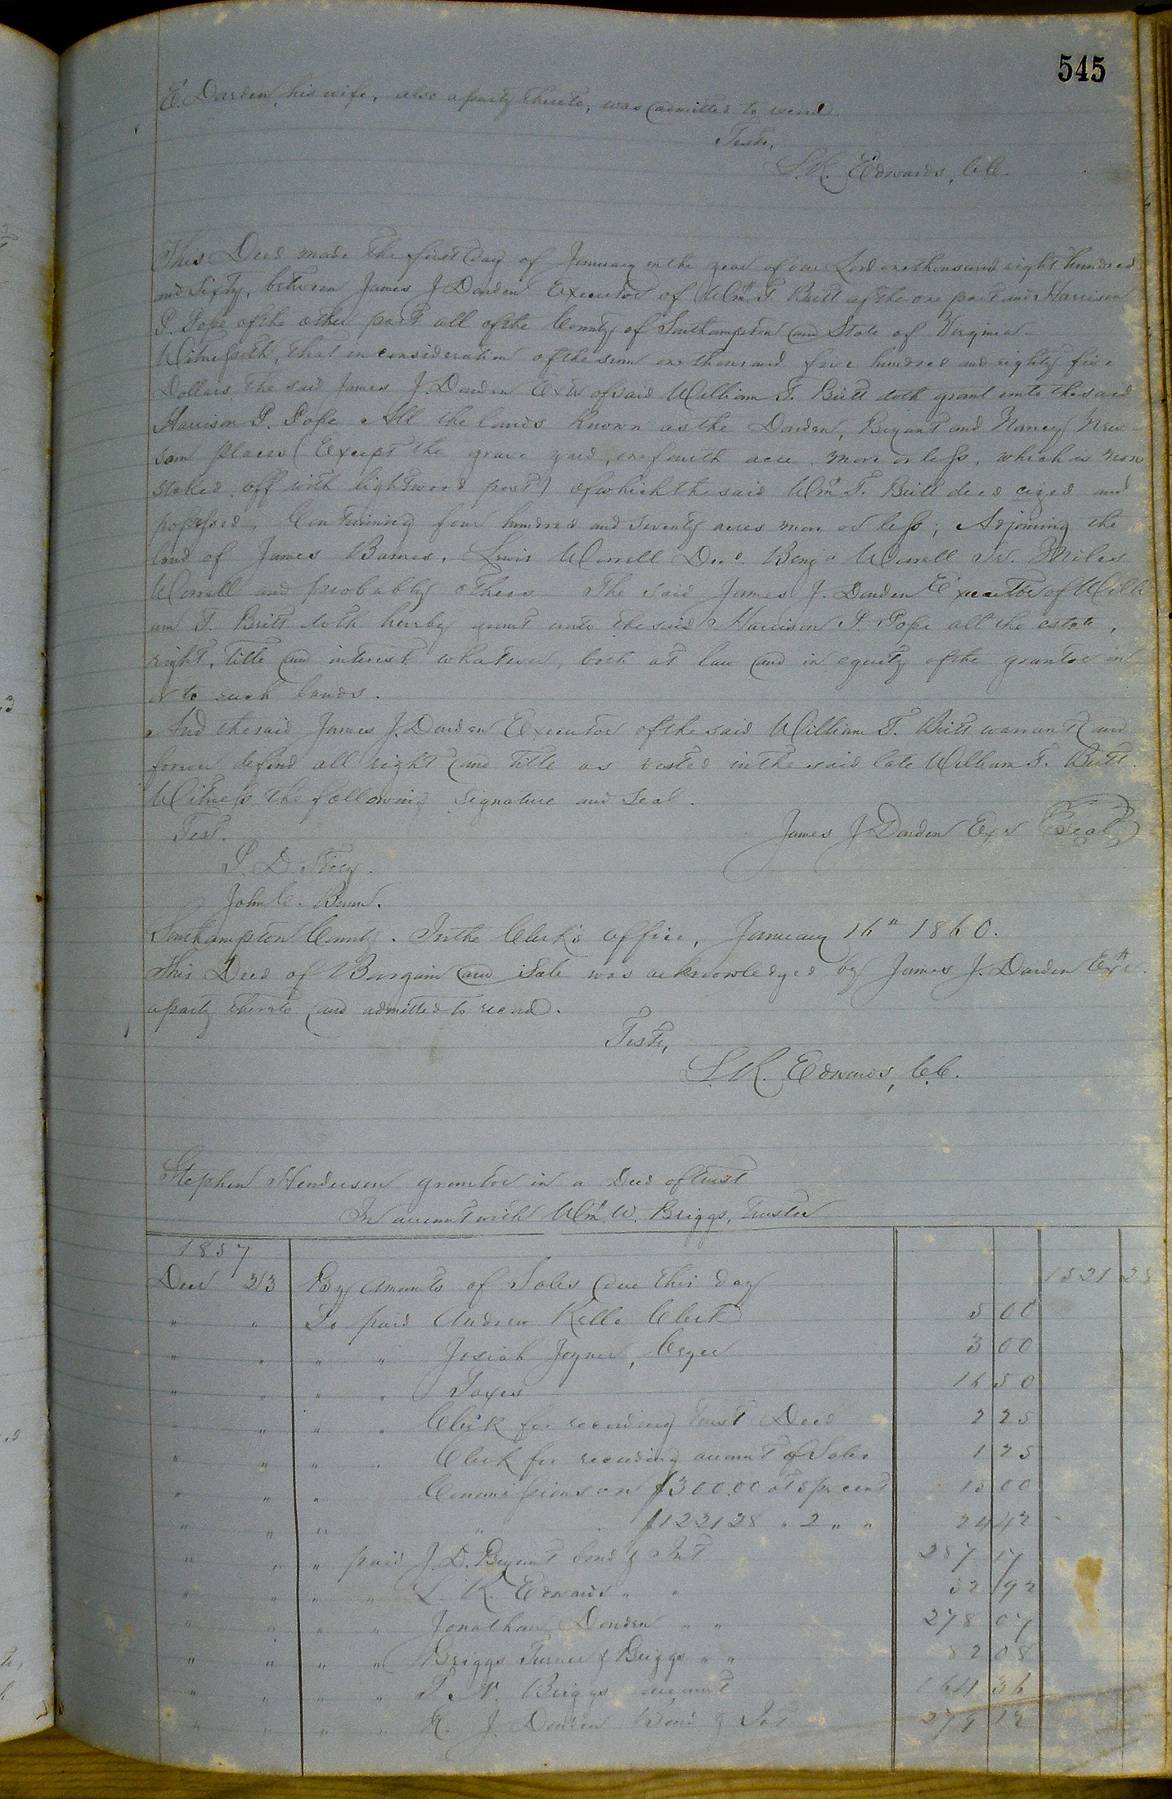 545
E. Darden, his wife, also a party thereto, was admitted to record
Teste,
L. R. Edwards, C.C.
This Deed made the first day of January in the year of our Lord one thousand eight hundred
and Sixty, between James J. Darden Executor of Wm. T. Britt of the one part and Harrison
P. Pope of the other part all of the County of Southampton and State of Virginia
Witnesseth, that in consideration of the sum one thousand five hundred and eighty five
Dollars, the said James J. Darden Exr of said William T. Britt doth grant unto the said
Harrison P. Pope All the lands known as the Darden, Bryant and Nancy New-
som places (Except the grave yard, one fourth acre more or less, which is now
staked off with lightwood post) of which the said Wm. T. Britt died cized and
possessed, Containing four hundred and seventy acres more or less; Adjoining the
land of James Barnes, Lewis Worrell Decd. Benj. Worrell Sr. Miles
Worrell and probably others The said James J. Darden Executor of Willi
am T. Britt doth hereby grant unto the said Harrison P. Pope all the estate,
right, title and interest whatever, both at law and in equity of the grantor in
or to such lands.
And the said James J. Darden Executor of the said William T. Britt warrant and
forever defend all right and title as vested in the said late William T. Britt.
Witness the following signature and seal.
Test. James J Darden Exr Seal
P. D.
John C.
Southampton County. In the Clerk's office, January 16th 1860.
This Deed of Bargain and Sale was acknowledged by James J. Darden Exr.
a party thereto and admitted to record.
Teste,
L. R. Edwards, C.C.
Stephen Henderson grantor in a Deed of trust
In account with Wm. W. Briggs, Trustee
1857
Decr 23 By amounts of Sales due this day 1521 28
" " To paid Andrew Kello Clerk 5 00
" " " " Josiah Joyner, Cryer 3 00
" " " " Taxes 16 50
" " " " Clerk for recording trust Deed 2 25
" " " " Clerk for recording account of Sales 1 25
" " " Commissions on $300.00 at 5 pr cent 15 00
" " " " $1221 28 " 2 " " 24 42
" " " paid J. D. Bryant bond & Int 287 17
" " " " L. R. Edwards " " 32 92
" " " " Jonathan Darden " " 278 07
" " " " Briggs Turner & Briggs " " 82 08
" " " " T. N. Briggs account 164 36
" " " " J. Darden Bond & Int 279 12